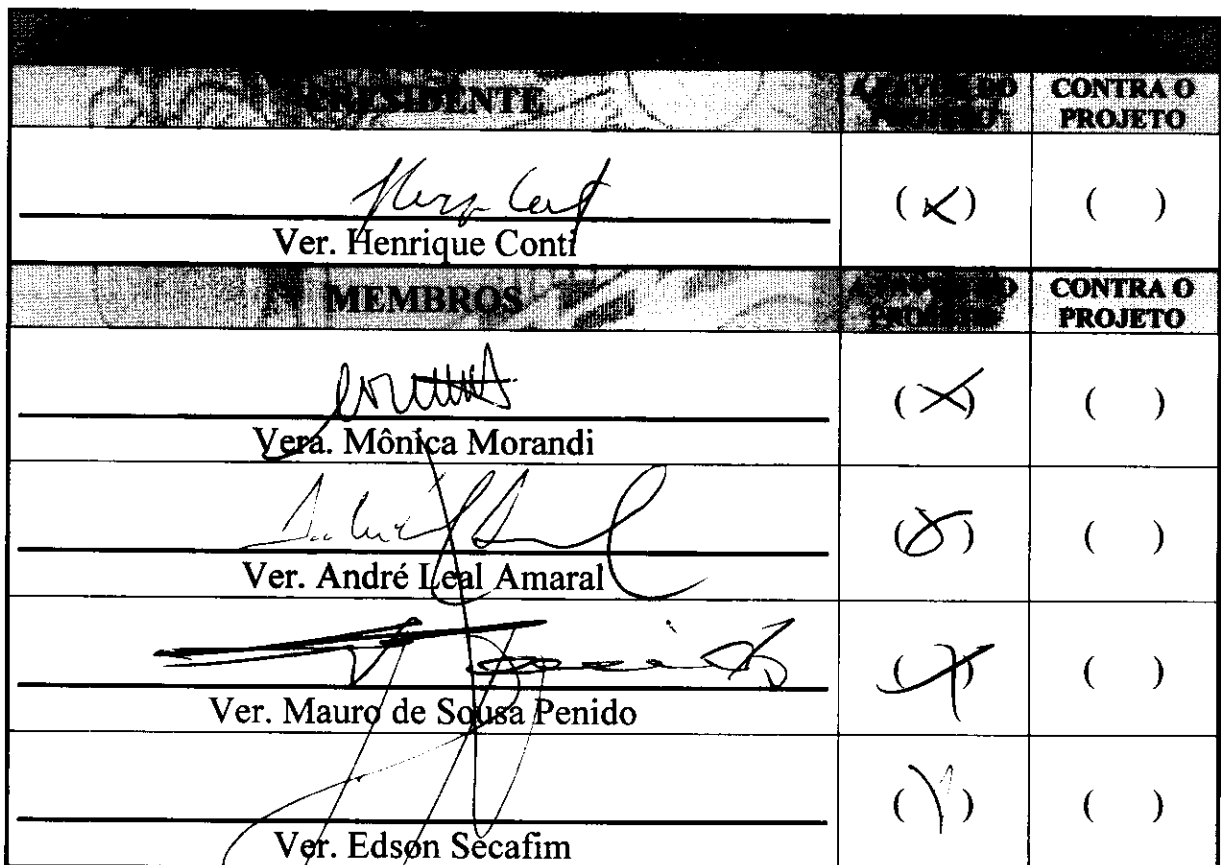 PRESIDENTE A FAVOR DO PROJETO CONTRA O PROJETO
Ver. Henrique Conti ( X ) ( )
MEMBROS A FAVOR DO PROJETO CONTRA O PROJETO
Vera. Mônica Morandi ( X ) ( )
Ver. André Leal Amaral ( X ) ( )
Ver. Mauro de Sousa Penido ( X ) ( )
Ver. Edson Secafim ( ) ( )